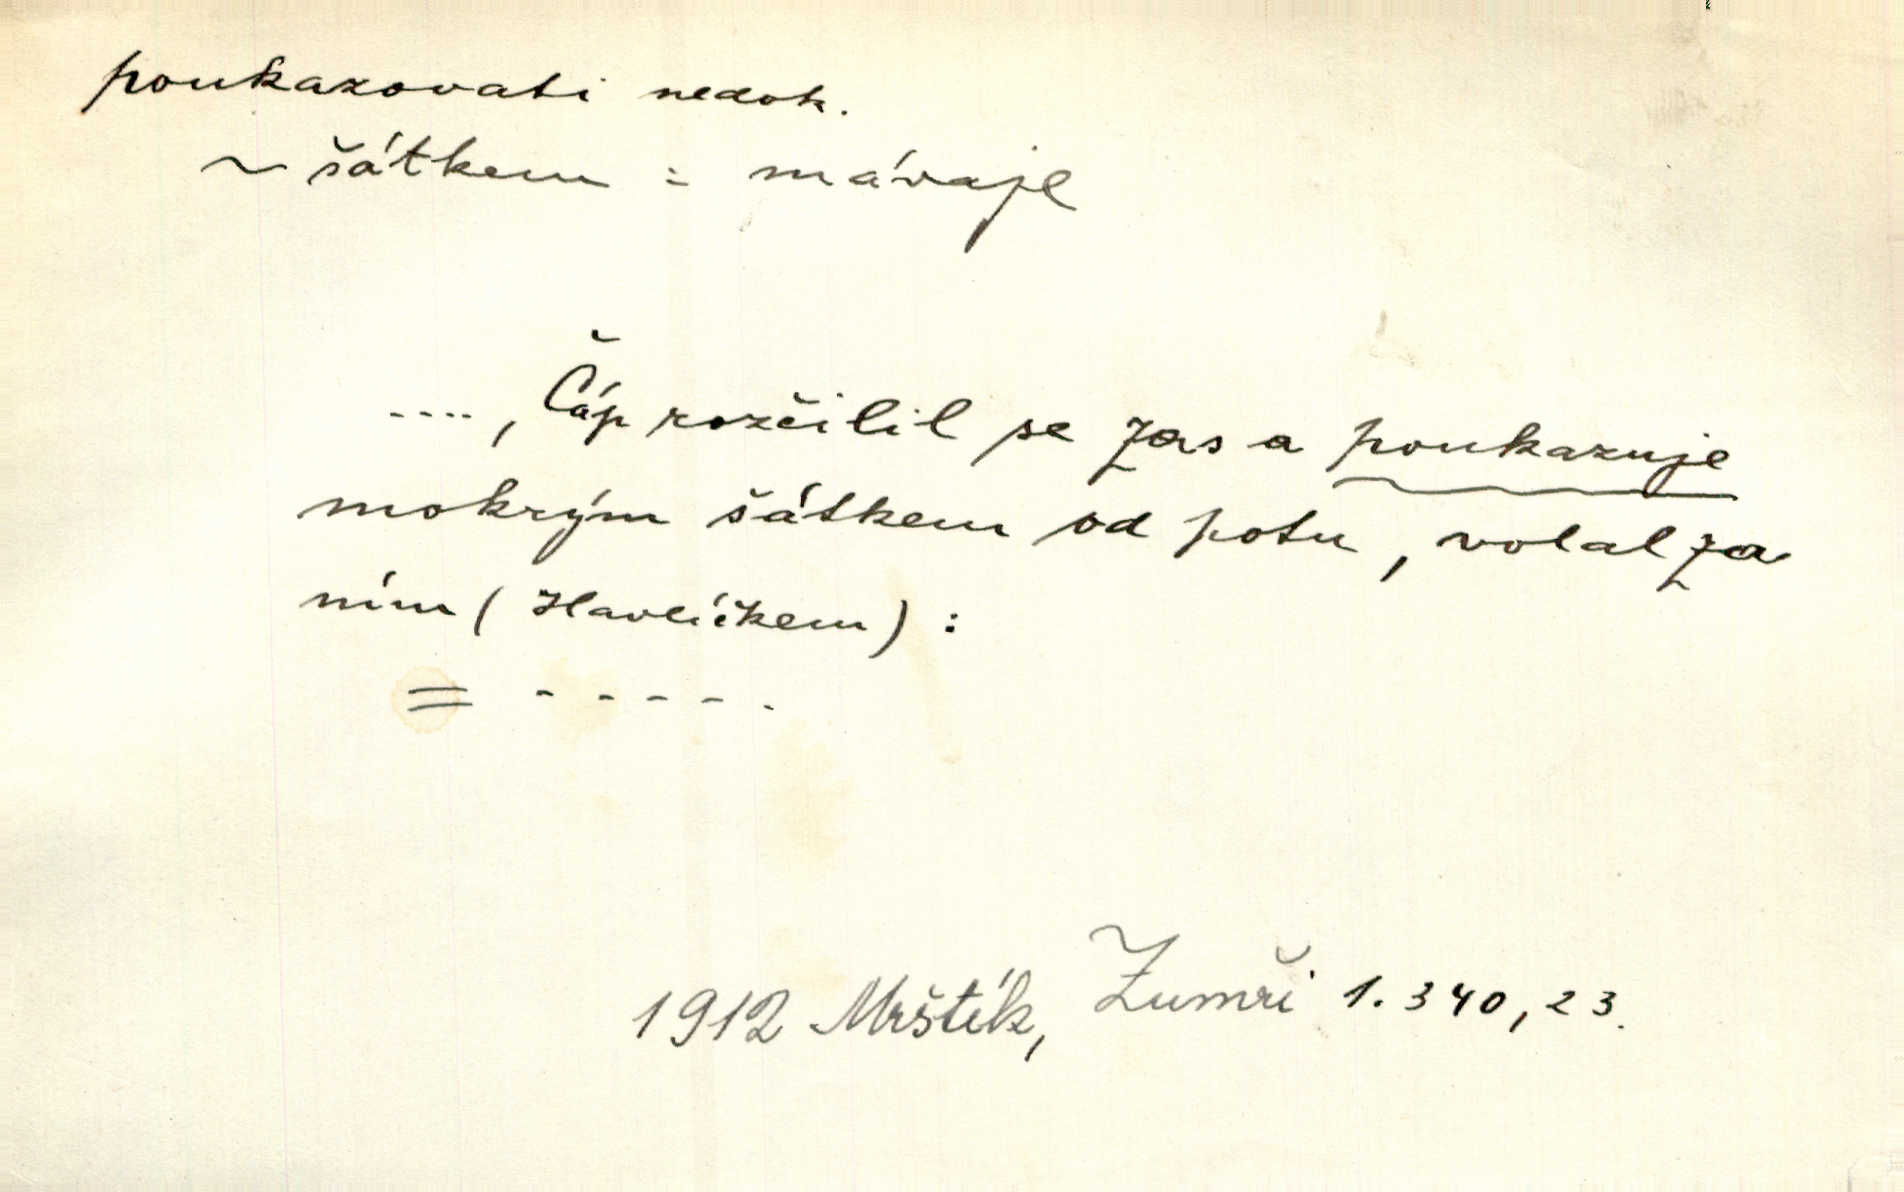 poukazovati nedok.
~ šátkem : mávaje
...., Čáp rozčilil se zas a poukazuje
mokrým šátkem od potu, volal za
ním (Havlíčkem) :
= - - - - .
1912 Mrštík, Zumři 1. 340, 23.